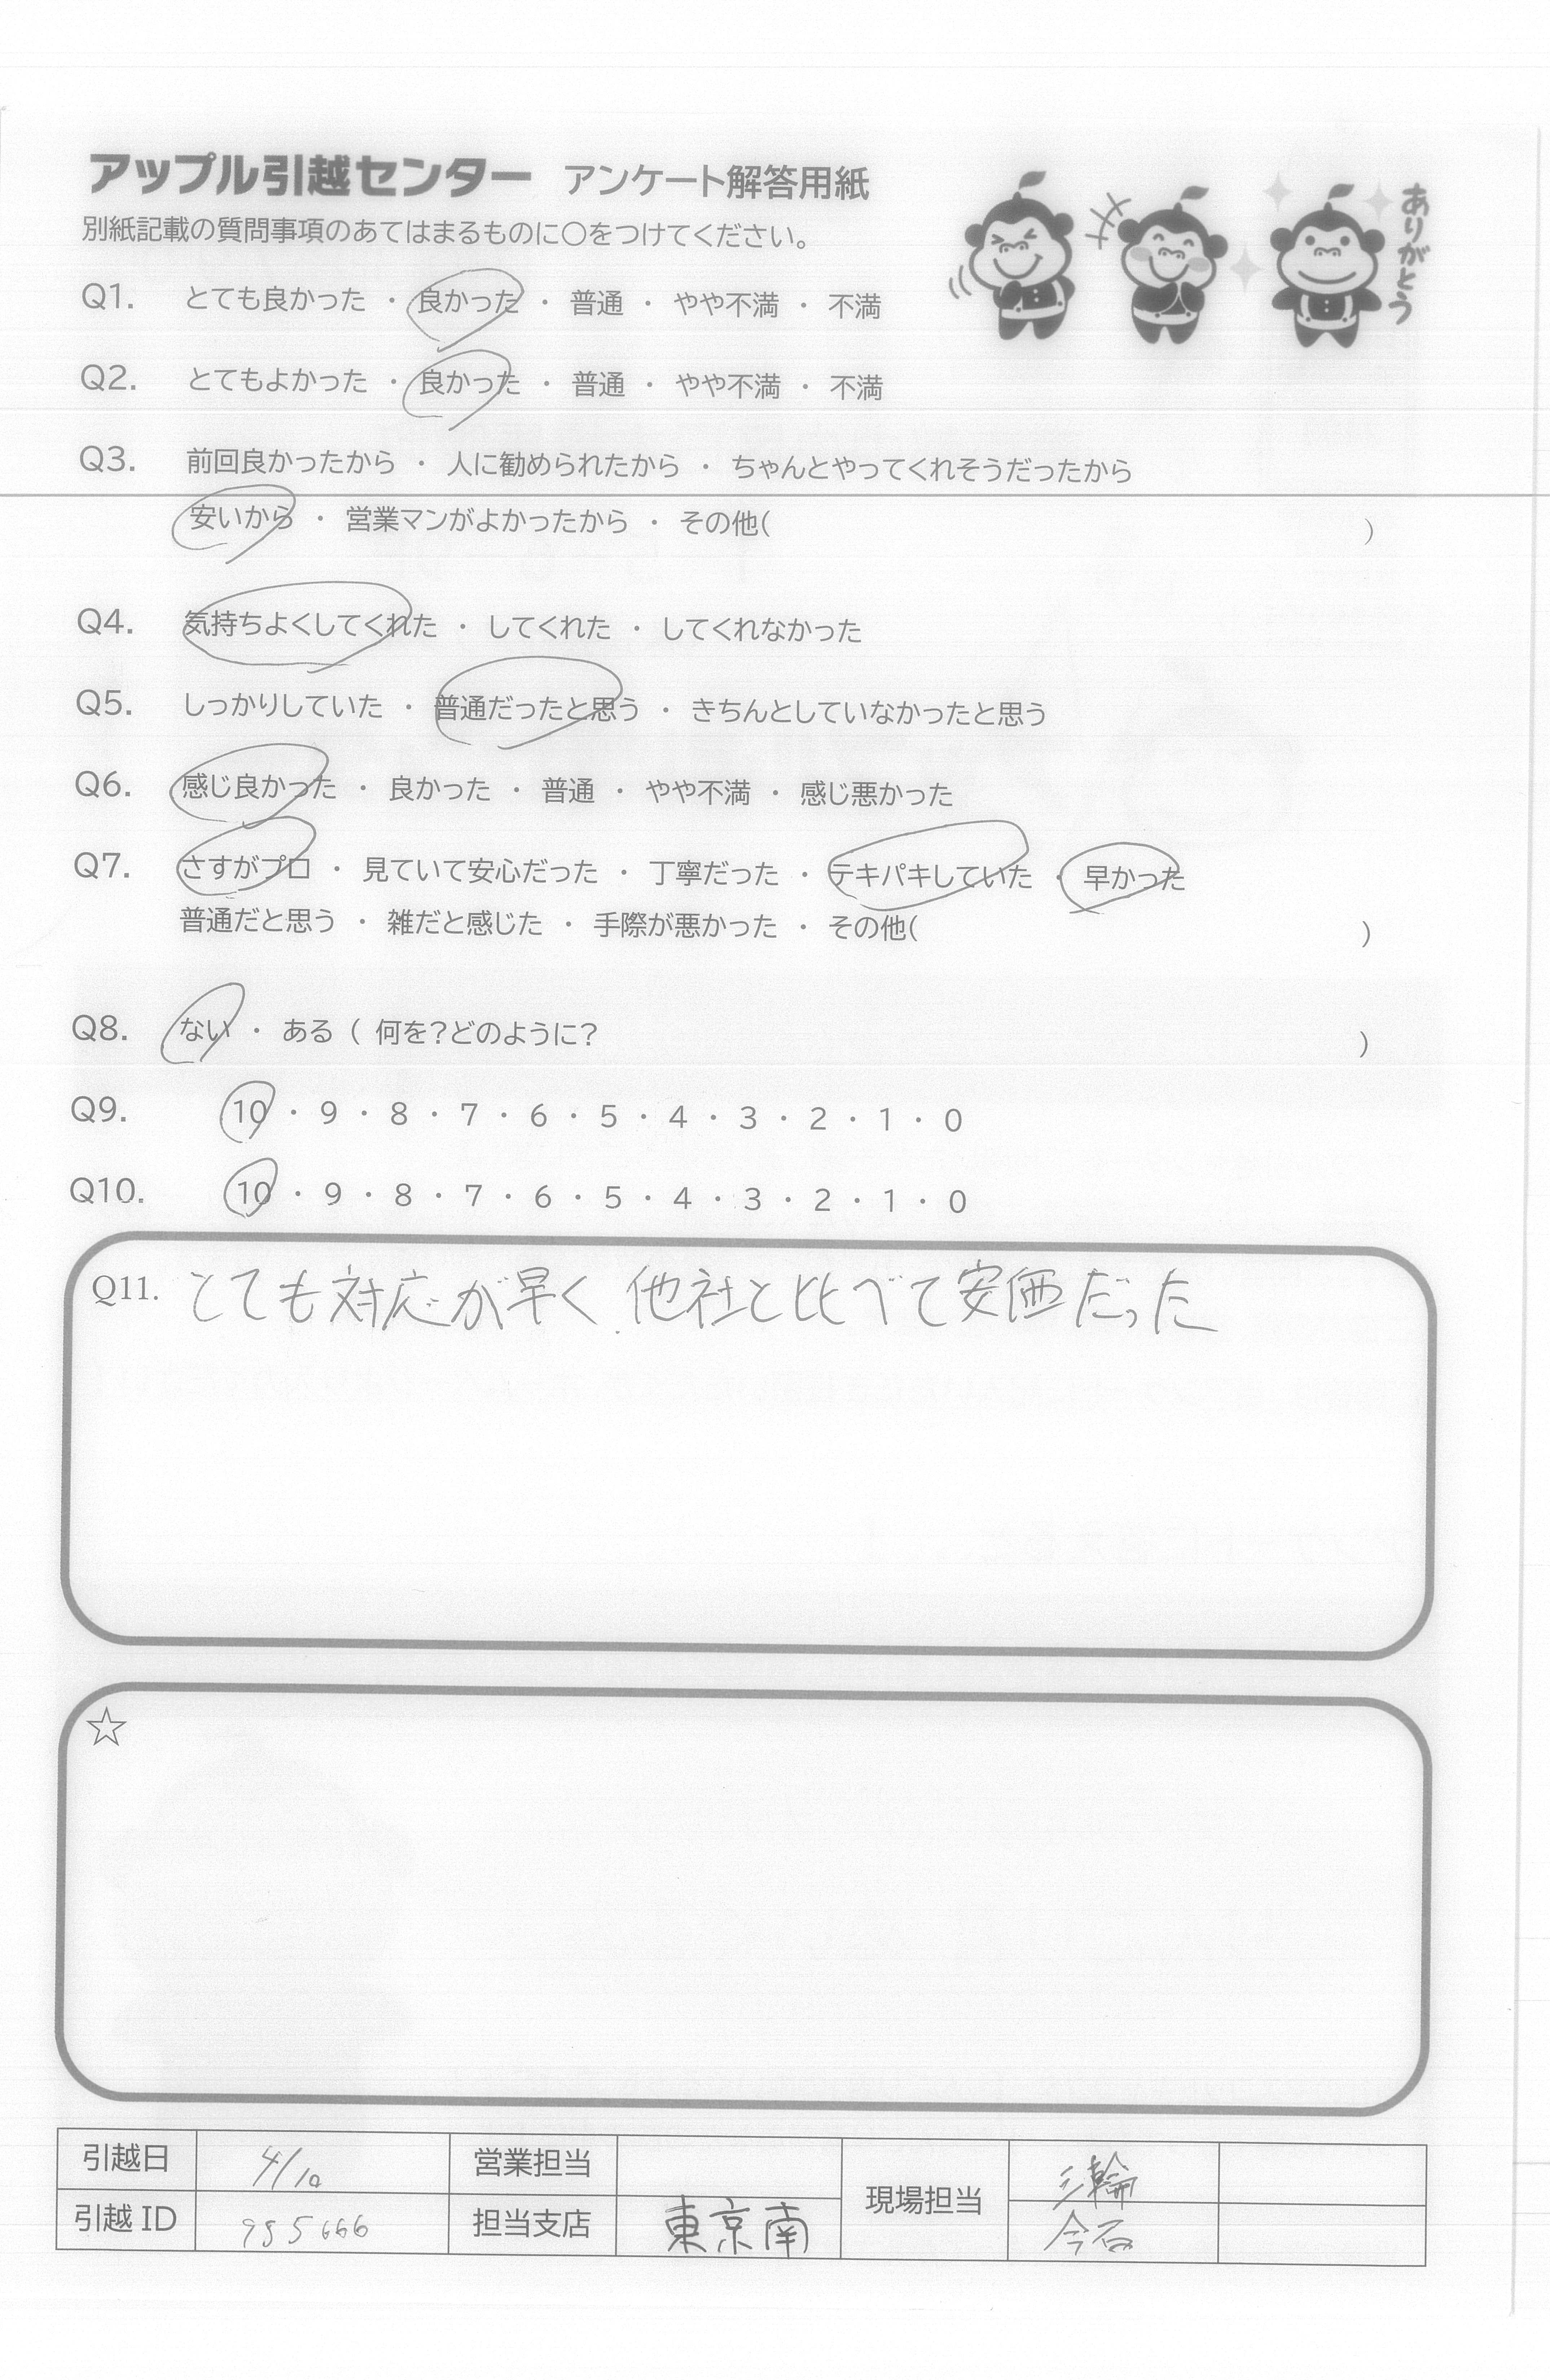 アップル引越センター アンケート解答用紙
別紙記載の質問事項のあてはまるものに〇をつけてください。
ありがとう
Q1. とても良かった ・ 良かった ・ 普通 ・ やや不満 ・ 不満
Q2. とてもよかった ・ 良かった ・ 普通 ・ やや不満 ・ 不満
Q3. 前回良かったから ・ 人に勧められたから ・ ちゃんとやってくれそうだったから
安いから ・ 営業マンがよかったから ・ その他( )
Q4. 気持ちよくしてくれた ・ してくれた ・ してくれなかった
Q5. しっかりしていた ・ 普通だったと思う ・ きちんとしていなかったと思う
Q6. 感じ良かった ・ 良かった ・ 普通 ・ やや不満 ・ 感じ悪かった
Q7. さすがプロ ・ 見ていて安心だった ・ 丁寧だった ・ テキパキしていた ・ 早かった
普通だと思う ・ 雑だと感じた ・ 手際が悪かった ・ その他( )
Q8. ない ・ ある ( 何を?どのように? )
Q9. 10 ・ 9 ・ 8 ・ 7 ・ 6 ・ 5 ・ 4 ・ 3 ・ 2 ・ 1 ・ 0
Q10. 10 ・ 9 ・ 8 ・ 7 ・ 6 ・ 5 ・ 4 ・ 3 ・ 2 ・ 1 ・ 0
Q11. とても対応が早く、他社と比べて安価だった
☆
引越日 4/10 営業担当 現場担当 三輪
引越 ID 担当支店 東京南 今石